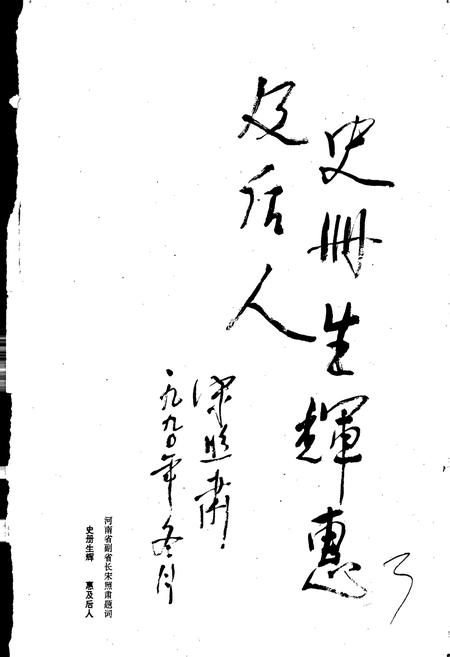 史冊生輝惠
及后人
宋照肃
一九九〇年冬月
河南省副省长宋照肃题词
史册生辉　惠及后人